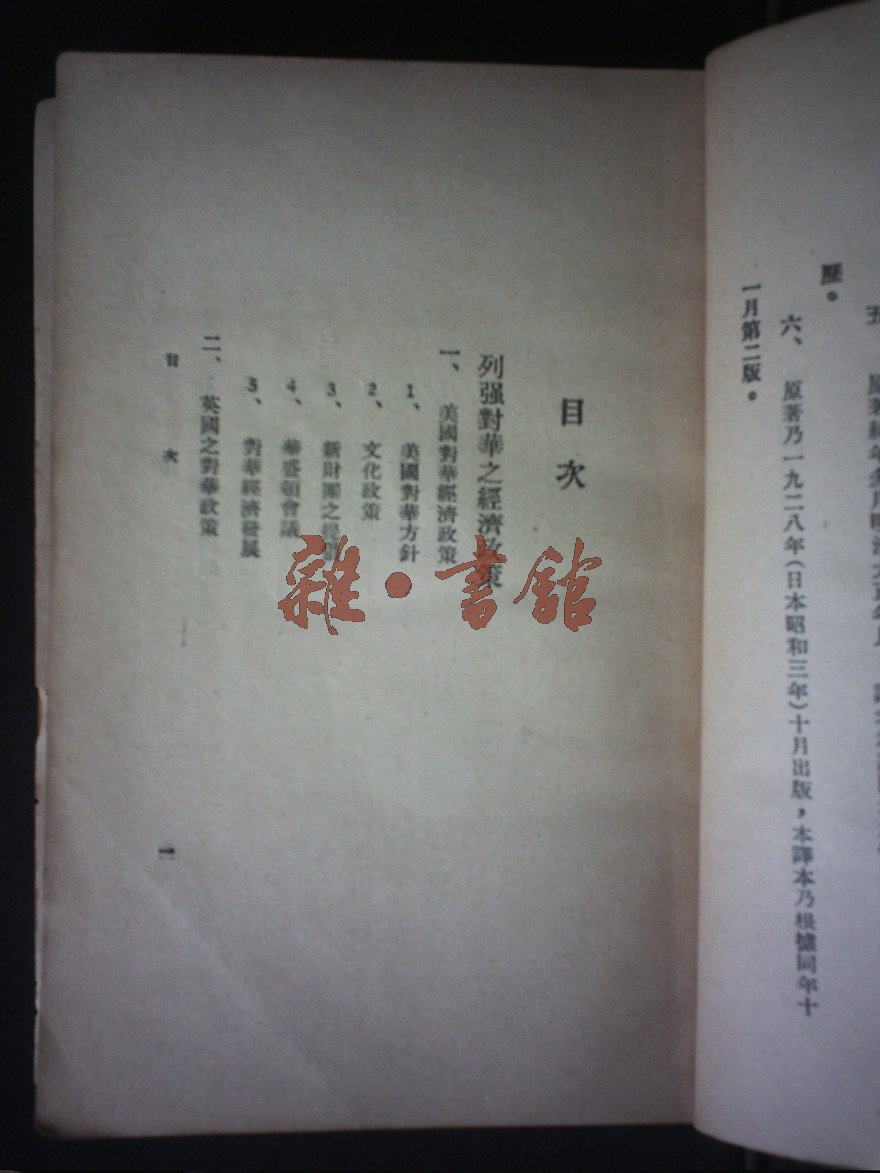 歷。
六、原著乃一九二八年(日本昭和三年)十月出版，本譯本乃根據同年十
一月第二版。
目次
列强對華之經濟政策
一、美國對華經濟政策
1、美國對華方針
2、文化政策
3、新財團之提
4、華盛頓會議
5、對華經濟發展
二、英國之對華政策
目次
一
雜·書館